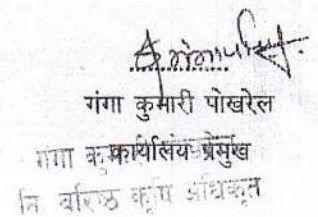 गंगा कुमारी पोखरेल
कार्यालय प्रमुख
नि वरिष्ठ कृषि अधिकृत